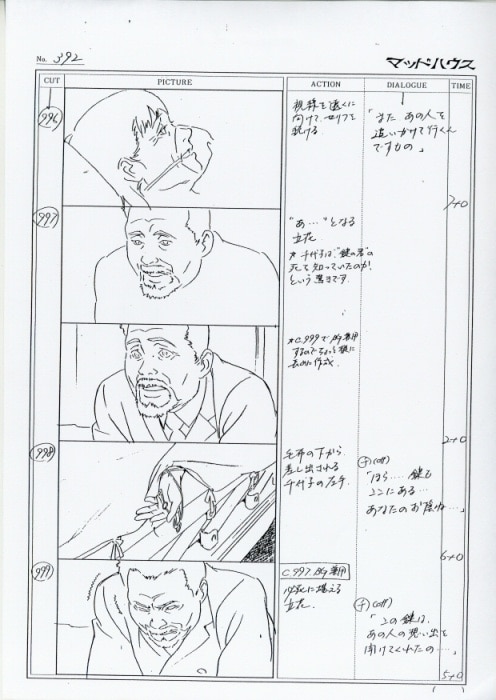 No. 392
マッドハウス
CUT
PICTURE
ACTION
DIALOGUE
TIME
996
視線を遠くに
向けて、セリフを
続ける
「また あの人を
追いかけて行くん
ですもの」
7+0
997
"あ…"となる
立花
*千代子は、"鍵の君"の
死を知っていたのか!
という驚きです
*C.999で兼用
2+0
998
毛布の下から
差し出される
千代子の左手
チ(off)
「ほら…… 鍵も
ここにある…
あなたのお陰ね…」
6+0
999
C.997 兼用
必死に堪える
立花.
チ(off)
「この鍵は、
あの人の思い出を
開けてくれたの……」
5+0
( )